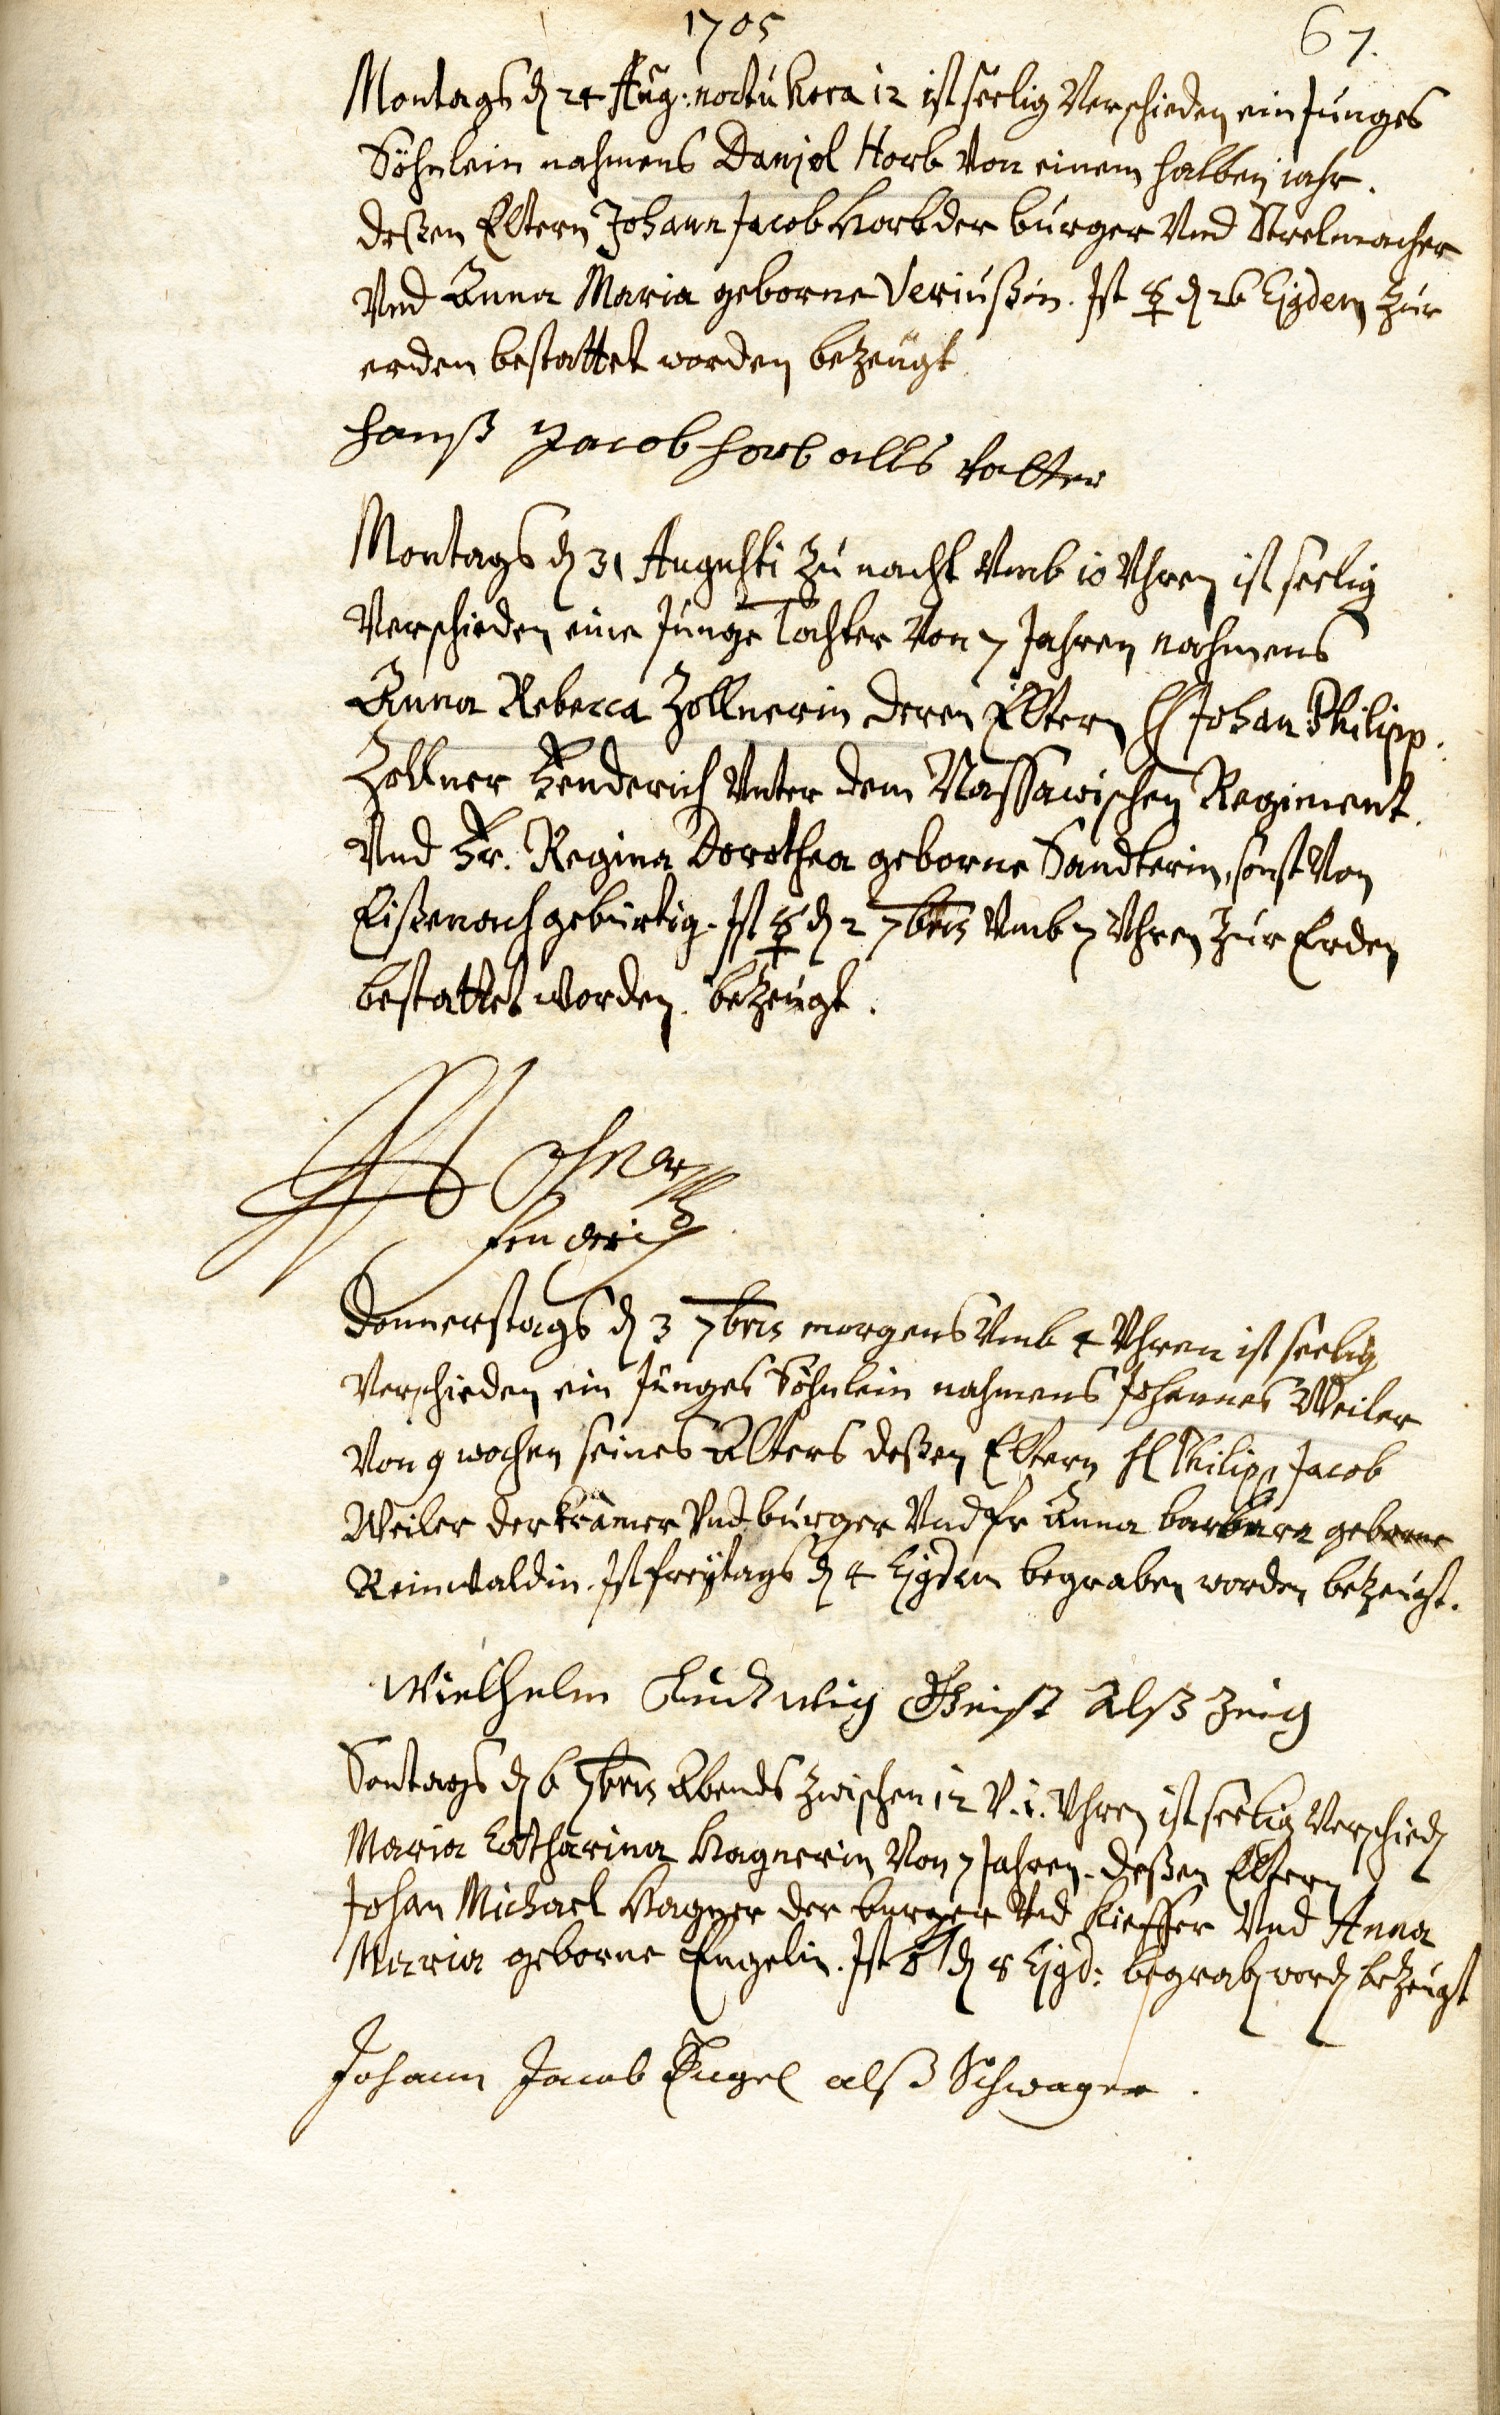 1705
67.
Montags d 24 Aug: noctu hora 12 ist seelig Verschieden ein Junges
Söhnlein nahmens Daniel Horb Von einem halben iahr.
deßen Eltern Johann Jacob Horb der burger Vnd
Vnd Anna Maria geborne Ist ☿ d 26 Ejgdem Zur
erden bestattet worden bezeügt
Hanß Jacob Horb alls Vatter
Montags d 31 Augusti Zu nacht Vmb 10 Vhren ist seelig
Verschieden eine Junge Tochter Von 7 Jahren nahmens
Anna Rebecca Zollnerin deren Eltern H Johan Philipp
Zollner Fenderich Vnter dem Nassawischen Regiment.
Vnd Fr. Regina Dorothea geborne Sandterin, sonst Von
Eißenach gebürtig. Ist ☿ d 2 7bris Vmb 7 Vhren Zur Erden
bestattet worden. bezeügt.
Zohlner
fenderich
Donnerstags d 3 7bris morgens Vmb 4 Vhren ist seelig
Verschieden ein Junges Söhnlein nahmens Johannes Weiler
Von 9 wochen seines Alters deßen Eltern H Philipp Jacob
Weiler der krämer Vnd burger Vnd fr Anna barbara geborne
Reinwaldin. Ist freÿtags d 4 Ejgdem begraben worden bezeugt.
Wielhelm Ludtwig Geist Alß Zeug
Sontags d 6 7bris Abends Zwischen 12 V. 1. Vhren ist seelig Verschied
Maria Catharina Wagnerin Von 7 Jahren. deßen Eltern
Johan Michael Wagner der burger Vnd Kieffer Vnd Anna
Maria geborne Engelin. Ist ♂ d 8 Ejgd: begrab word bezeugt
Johann Jacob Engel alß Schwager.